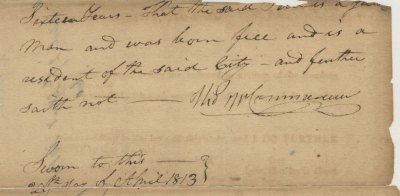 Sixteen Years - That the said is a free
man and was born free and is a
resident of the said City - and further
saith not -
Sworn to this -
day of April 1813 }